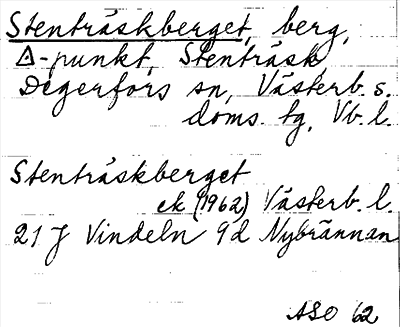 Stenträskberget, berg,
△-punkt, Stenträsk,
Degerfors sn, Västerb. s.
doms. tg, Vb. l.
Stenträskberget
ek (1962) Västerb. l.
21 J Vindeln 9d Nybrännan
ASO 62